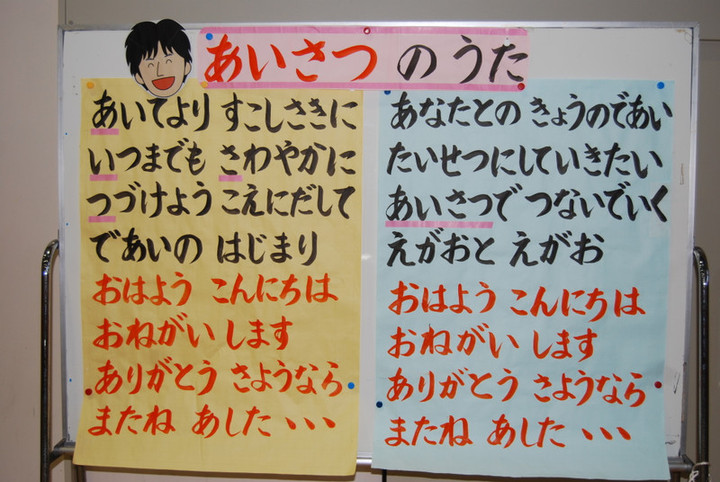 あいさつ の うた
あいてより すこしさきに
いつまでも さわやかに
つづけよう こえにだして
であいの はじまり
おはよう こんにちは
おねがい します
ありがとう さようなら
またね あした・・・
あなたとの きょうのであい
たいせつにしていきたい
あいさつで つないでいく
えがおと えがお
おはよう こんにちは
おねがい します
ありがとう さようなら
またね あした・・・